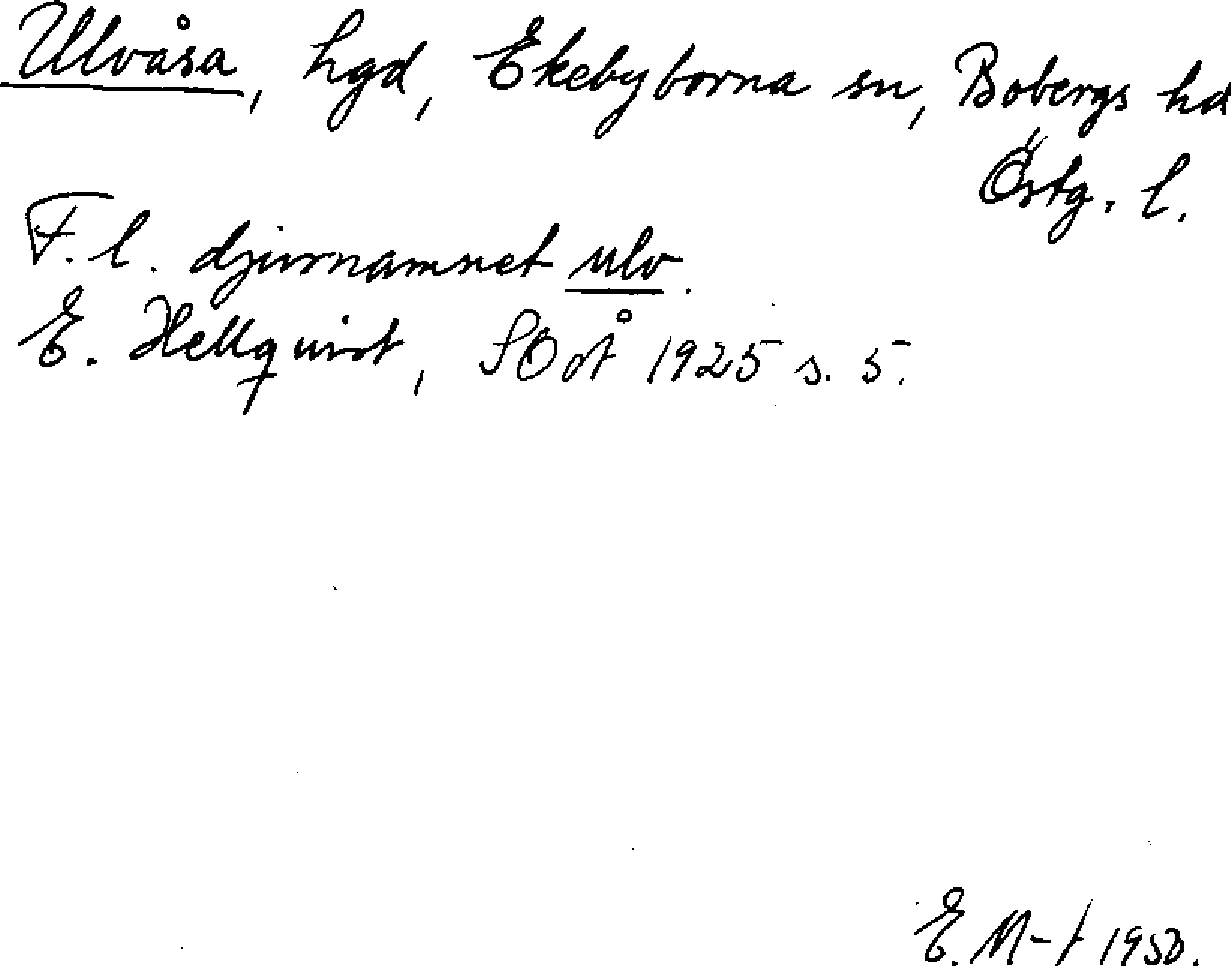 Ulvåsa, hgd, Ekebyborna sn, Bobergs hd
Östg. l.
F.l. djurnamnet ulv.
E. Hellquist, SOSÅ 1925 s. 5.
E. M-t 1950.